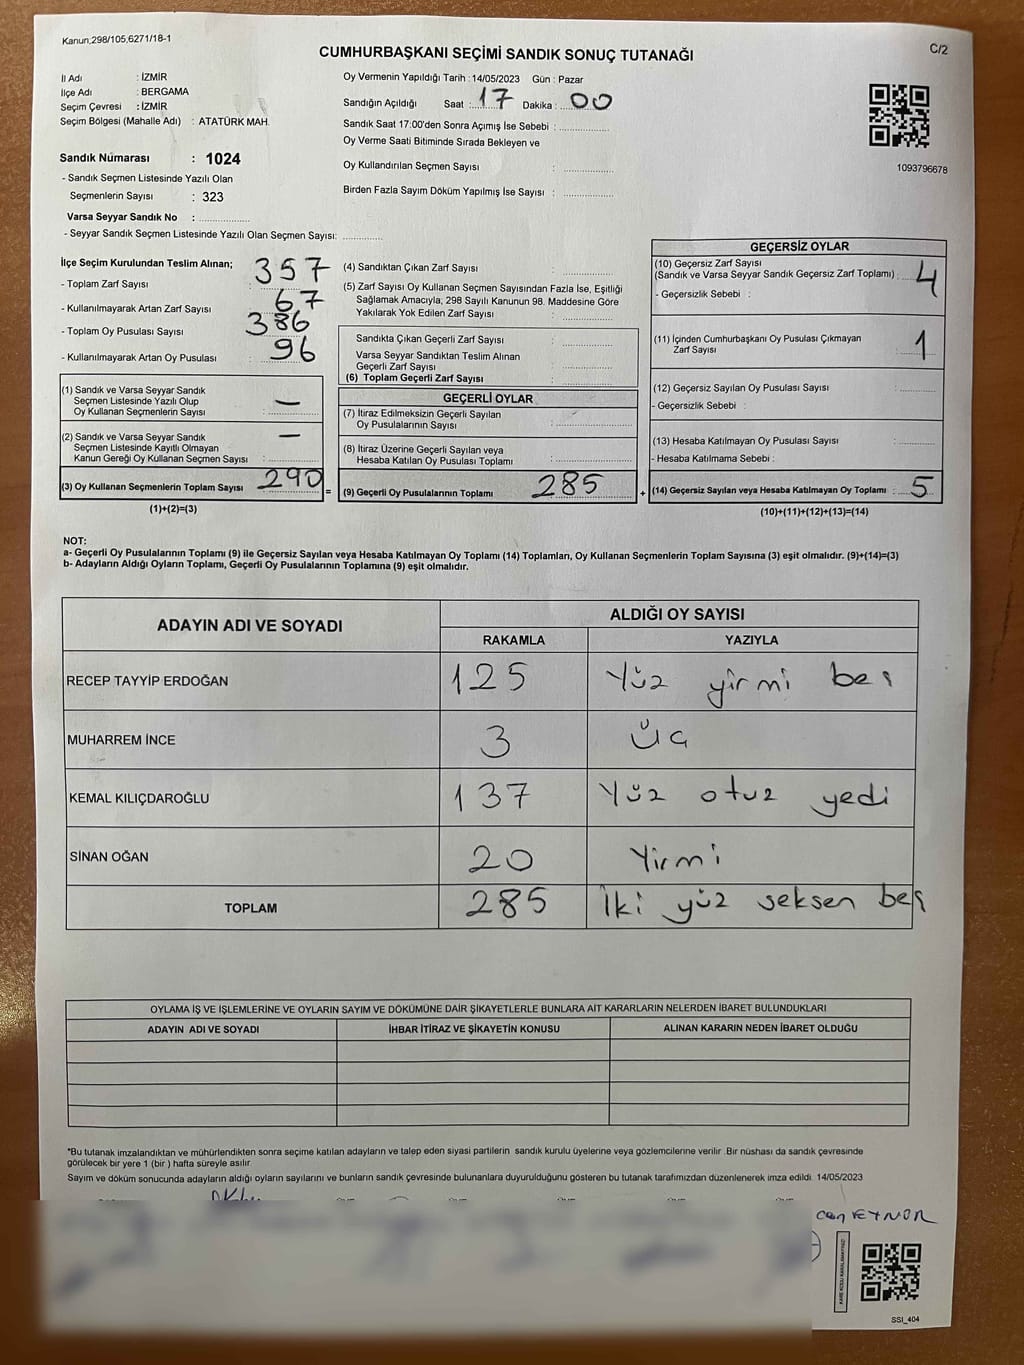 Kanun,298/105,6271/18-1
C/2
CUMHURBAŞKANI SEÇİMİ SANDIK SONUÇ TUTANAĞI
İl Adı : İZMİR
İlçe Adı : BERGAMA
Seçim Çevresi : İZMİR
Seçim Bölgesi (Mahalle Adı) : ATATÜRK MAH.
Oy Vermenin Yapıldığı Tarih :14/05/2023 Gün : Pazar
Sandığın Açıldığı Saat : 17 Dakika : 00
Sandık Saat 17:00'den Sonra Açımış İse Sebebi :
Oy Verme Saati Bitiminde Sırada Bekleyen ve
Oy Kullandırılan Seçmen Sayısı :
Birden Fazla Sayım Döküm Yapılmış İse Sayısı :
1093796678
Sandık Numarası : 1024
- Sandık Seçmen Listesinde Yazılı Olan
Seçmenlerin Sayısı : 323
Varsa Seyyar Sandık No :
- Seyyar Sandık Seçmen Listesinde Yazılı Olan Seçmen Sayısı:
İlçe Seçim Kurulundan Teslim Alınan;
- Toplam Zarf Sayısı : 357
- Kullanılmayarak Artan Zarf Sayısı : 67
- Toplam Oy Pusulası Sayısı : 386
- Kullanılmayarak Artan Oy Pusulası : 96
(1) Sandık ve Varsa Seyyar Sandık
Seçmen Listesinde Yazılı Olup
Oy Kullanan Seçmenlerin Sayısı : —
(2) Sandık ve Varsa Seyyar Sandık
Seçmen Listesinde Kayıtlı Olmayan
Kanun Gereği Oy Kullanan Seçmen Sayısı : —
(3) Oy Kullanan Seçmenlerin Toplam Sayısı : 290 =
(1)+(2)=(3)
(4) Sandıktan Çıkan Zarf Sayısı :
(5) Zarf Sayısı Oy Kullanan Seçmen Sayısından Fazla İse, Eşitliği
Sağlamak Amacıyla, 298 Sayılı Kanunun 98. Maddesine Göre
Yakılarak Yok Edilen Zarf Sayısı :
Sandıkta Çıkan Geçerli Zarf Sayısı :
Varsa Seyyar Sandıktan Teslim Alınan
Geçerli Zarf Sayısı :
(6) Toplam Geçerli Zarf Sayısı :
GEÇERLİ OYLAR
(7) İtiraz Edilmeksizin Geçerli Sayılan
Oy Pusulalarının Sayısı :
(8) İtiraz Üzerine Geçerli Sayılan veya
Hesaba Katılan Oy Pusulası Toplamı :
(9) Geçerli Oy Pusulalarının Toplamı : 285 +
GEÇERSİZ OYLAR
(10) Geçersiz Zarf Sayısı
(Sandık ve Varsa Seyyar Sandık Geçersiz Zarf Toplamı) : 4
- Geçersizlik Sebebi :
(11) İçinden Cumhurbaşkanı Oy Pusulası Çıkmayan
Zarf Sayısı : 1
(12) Geçersiz Sayılan Oy Pusulası Sayısı :
- Geçersizlik Sebebi :
(13) Hesaba Katılmayan Oy Pusulası Sayısı :
- Hesaba Katılmama Sebebi :
(14) Geçersiz Sayılan veya Hesaba Katılmayan Oy Toplamı : 5
(10)+(11)+(12)+(13)=(14)
NOT:
a- Geçerli Oy Pusulalarının Toplamı (9) ile Geçersiz Sayılan veya Hesaba Katılmayan Oy Toplamı (14) Toplamları, Oy Kullanan Seçmenlerin Toplam Sayısına (3) eşit olmalıdır. (9)+(14)=(3)
b- Adayların Aldığı Oyların Toplamı, Geçerli Oy Pusulalarının Toplamına (9) eşit olmalıdır.
ADAYIN ADI VE SOYADI ALDIĞI OY SAYISI
RAKAMLA YAZIYLA
RECEP TAYYİP ERDOĞAN 125 Yüz yirmi beş
MUHARREM İNCE 3 Üç
KEMAL KILIÇDAROĞLU 137 Yüz otuz yedi
SİNAN OĞAN 20 Yirmi
TOPLAM 285 İki yüz seksen beş
OYLAMA İŞ VE İŞLEMLERİNE VE OYLARIN SAYIM VE DÖKÜMÜNE DAİR ŞİKAYETLERLE BUNLARA AİT KARARLARIN NELERDEN İBARET BULUNDUKLARI
ADAYIN ADI VE SOYADI İHBAR İTİRAZ VE ŞİKAYETİN KONUSU ALINAN KARARIN NEDEN İBARET OLDUĞU
*Bu tutanak imzalandıktan ve mühürlendikten sonra seçime katılan adayların ve talep eden siyasi partilerin sandık kurulu üyelerine veya gözlemcilerine verilir .Bir nüshası da sandık çevresinde
görülecek bir yere 1 (bir ) hafta süreyle asılır.
Sayım ve döküm sonucunda adayların aldığı oyların sayılarını ve bunların sandık çevresinde bulunanlara duyurulduğunu gösteren bu tutanak tarafımızdan düzenlenerek imza edildi. 14/05/2023
SSI_404